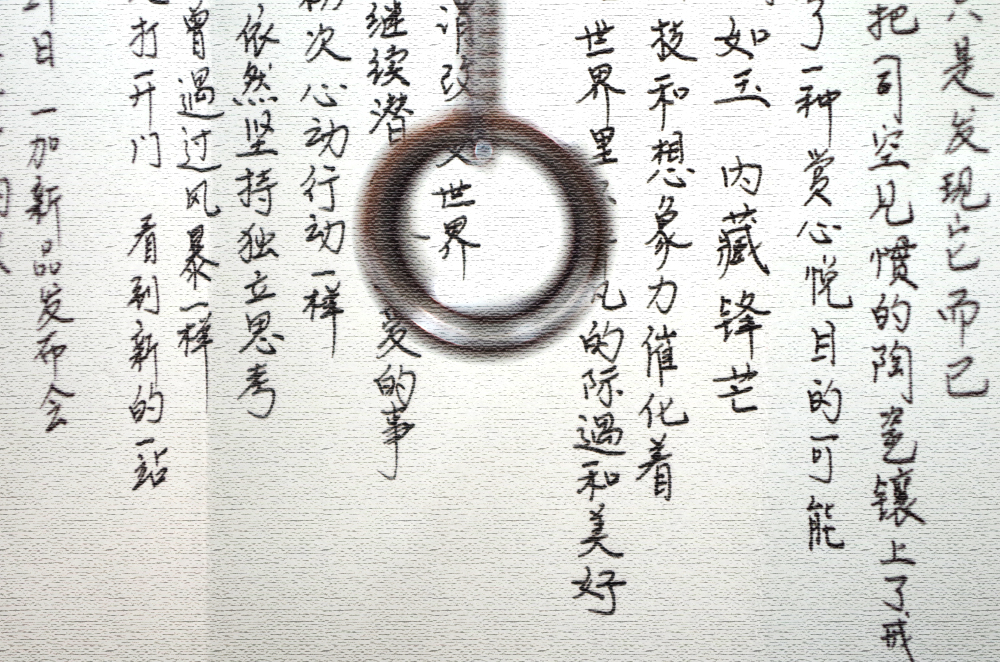 只是发现它而已
把司空见惯的陶瓷镶上了戒
了一种赏心悦目的可能
如玉 内藏锋芒
技和想象力催化着
世界里 凡的际遇和美好
请改变世界
继续潜 爱的事
次心动行动一样
依然坚持独立思考
曾遇过风暴一样
打开门 看到新的一站
日 一加新品发布会